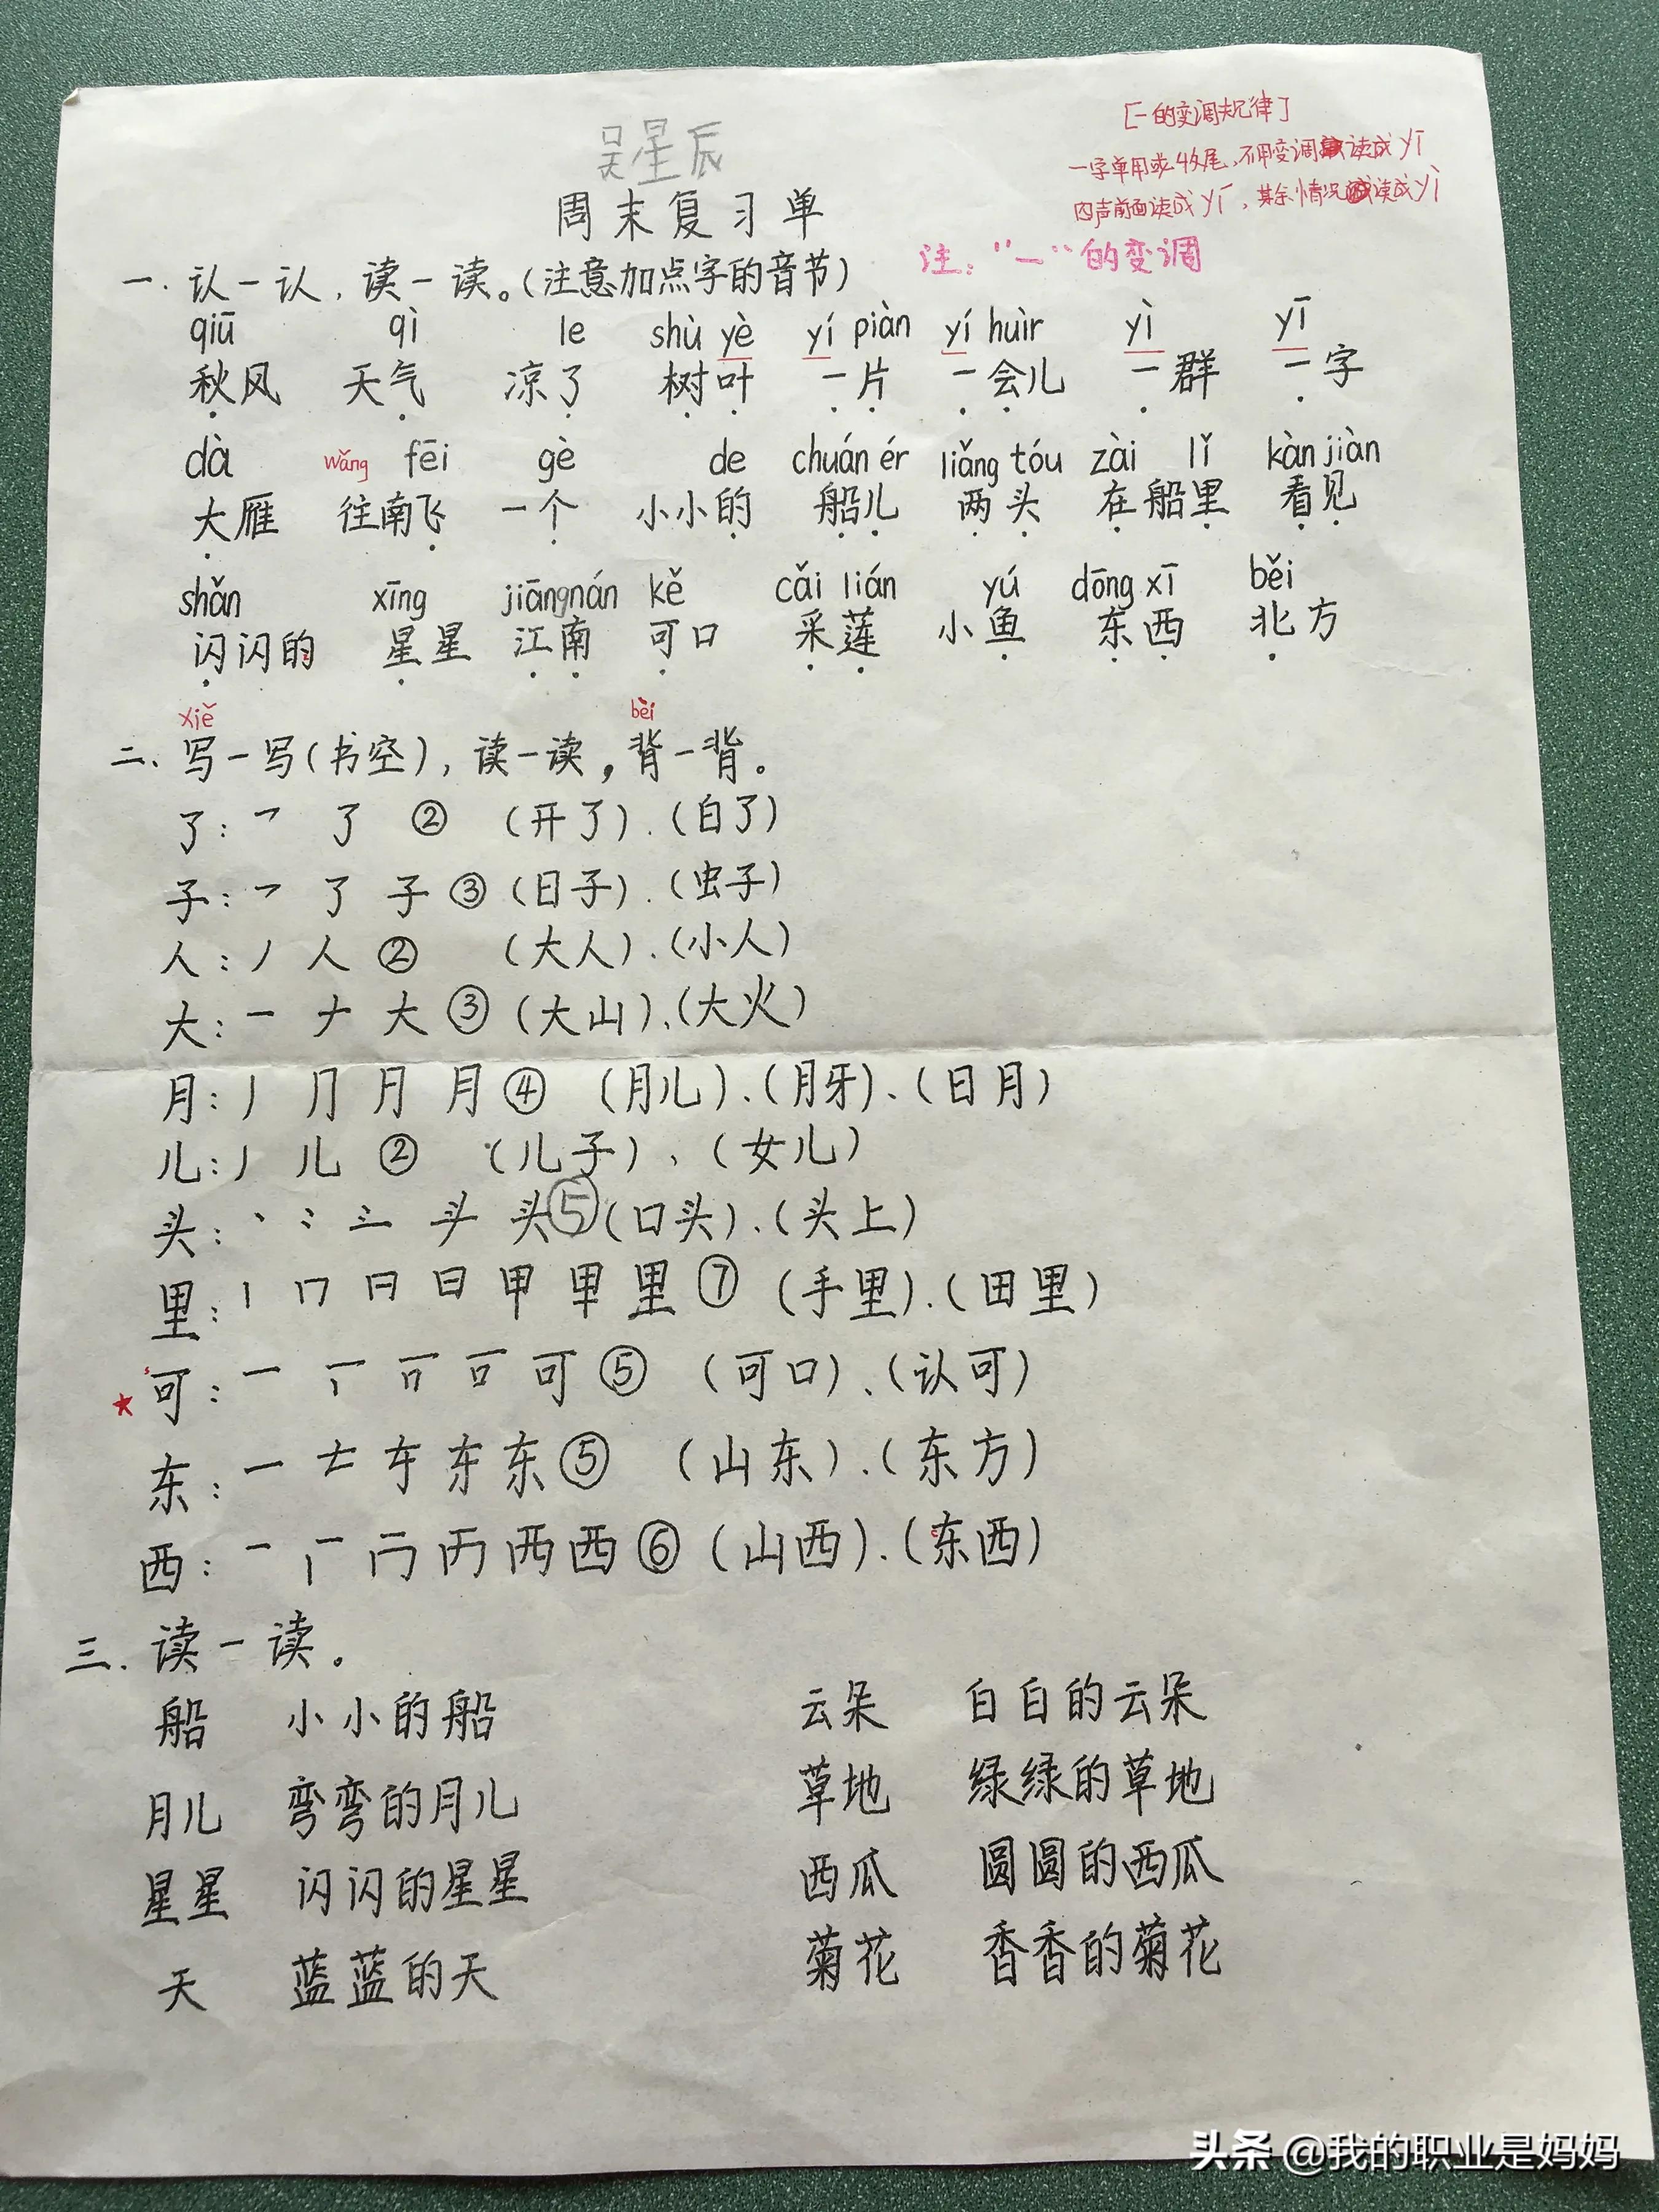 吴星辰
[一的变调规律]
一字单用或收尾，不用变调读成yī
四声前面读成yí，其余情况读成yì
周末复习单
注："一"的变调
一.认一认，读一读。(注意加点字的音节)
qiū qì le shù yè yí piàn yí huìr yì yī
秋风 天气 凉了 树叶 一片 一会儿 一群 一字
dà wǎng fēi gè de chuán ér liǎng tóu zài lǐ kàn jiàn
大雁 往南飞 一个 小小的 船儿 两头 在船里 看见
shǎn xīng jiāngnán kě cǎi lián yú dōng xī běi
闪闪的 星星 江南 可口 采莲 小鱼 东西 北方
xiě bèi
二、写一写(书空)，读一读，背一背。
了：乛 了 ② (开了)、(白了)
子：乛 了 子 ③ (日子)、(虫子)
人：丿 人 ② (大人)、(小人)
大：一 ナ 大 ③ (大山)、(大火)
月：丿 ⺆ 月 月 ④ (月儿)、(月牙)、(日月)
儿：丿 儿 ② (儿子)、(女儿)
头：丶 头 ⑤ (口头)、(头上)
里：丨 冂 日 日 甲 里 里 ⑦ (手里)、(田里)
可：一 丁 可 ⑤ (可口)、(认可)
东：一 东 ⑤ (山东)、(东方)
西：一 丆 襾 西 ⑥ (山西)、(东西)
三.读一读。
船 小小的船 云朵 白白的云朵
月儿 弯弯的月儿 草地 绿绿的草地
星星 闪闪的星星 西瓜 圆圆的西瓜
天 蓝蓝的天 菊花 香香的菊花
头条 @我的职业是妈妈